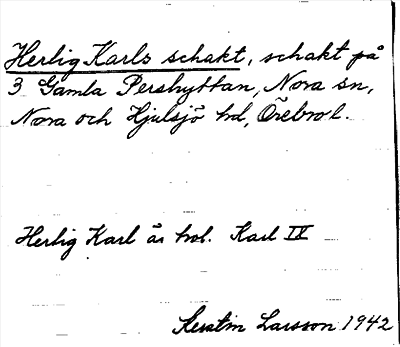 Herlig Karls schakt, schakt på
3 Gamla Pershyttan, Nora sn,
Nora och Hjulsjö hd, Örebro l.
Herlig Karl är trol. Karl IV
Kerstin Larsson 1942